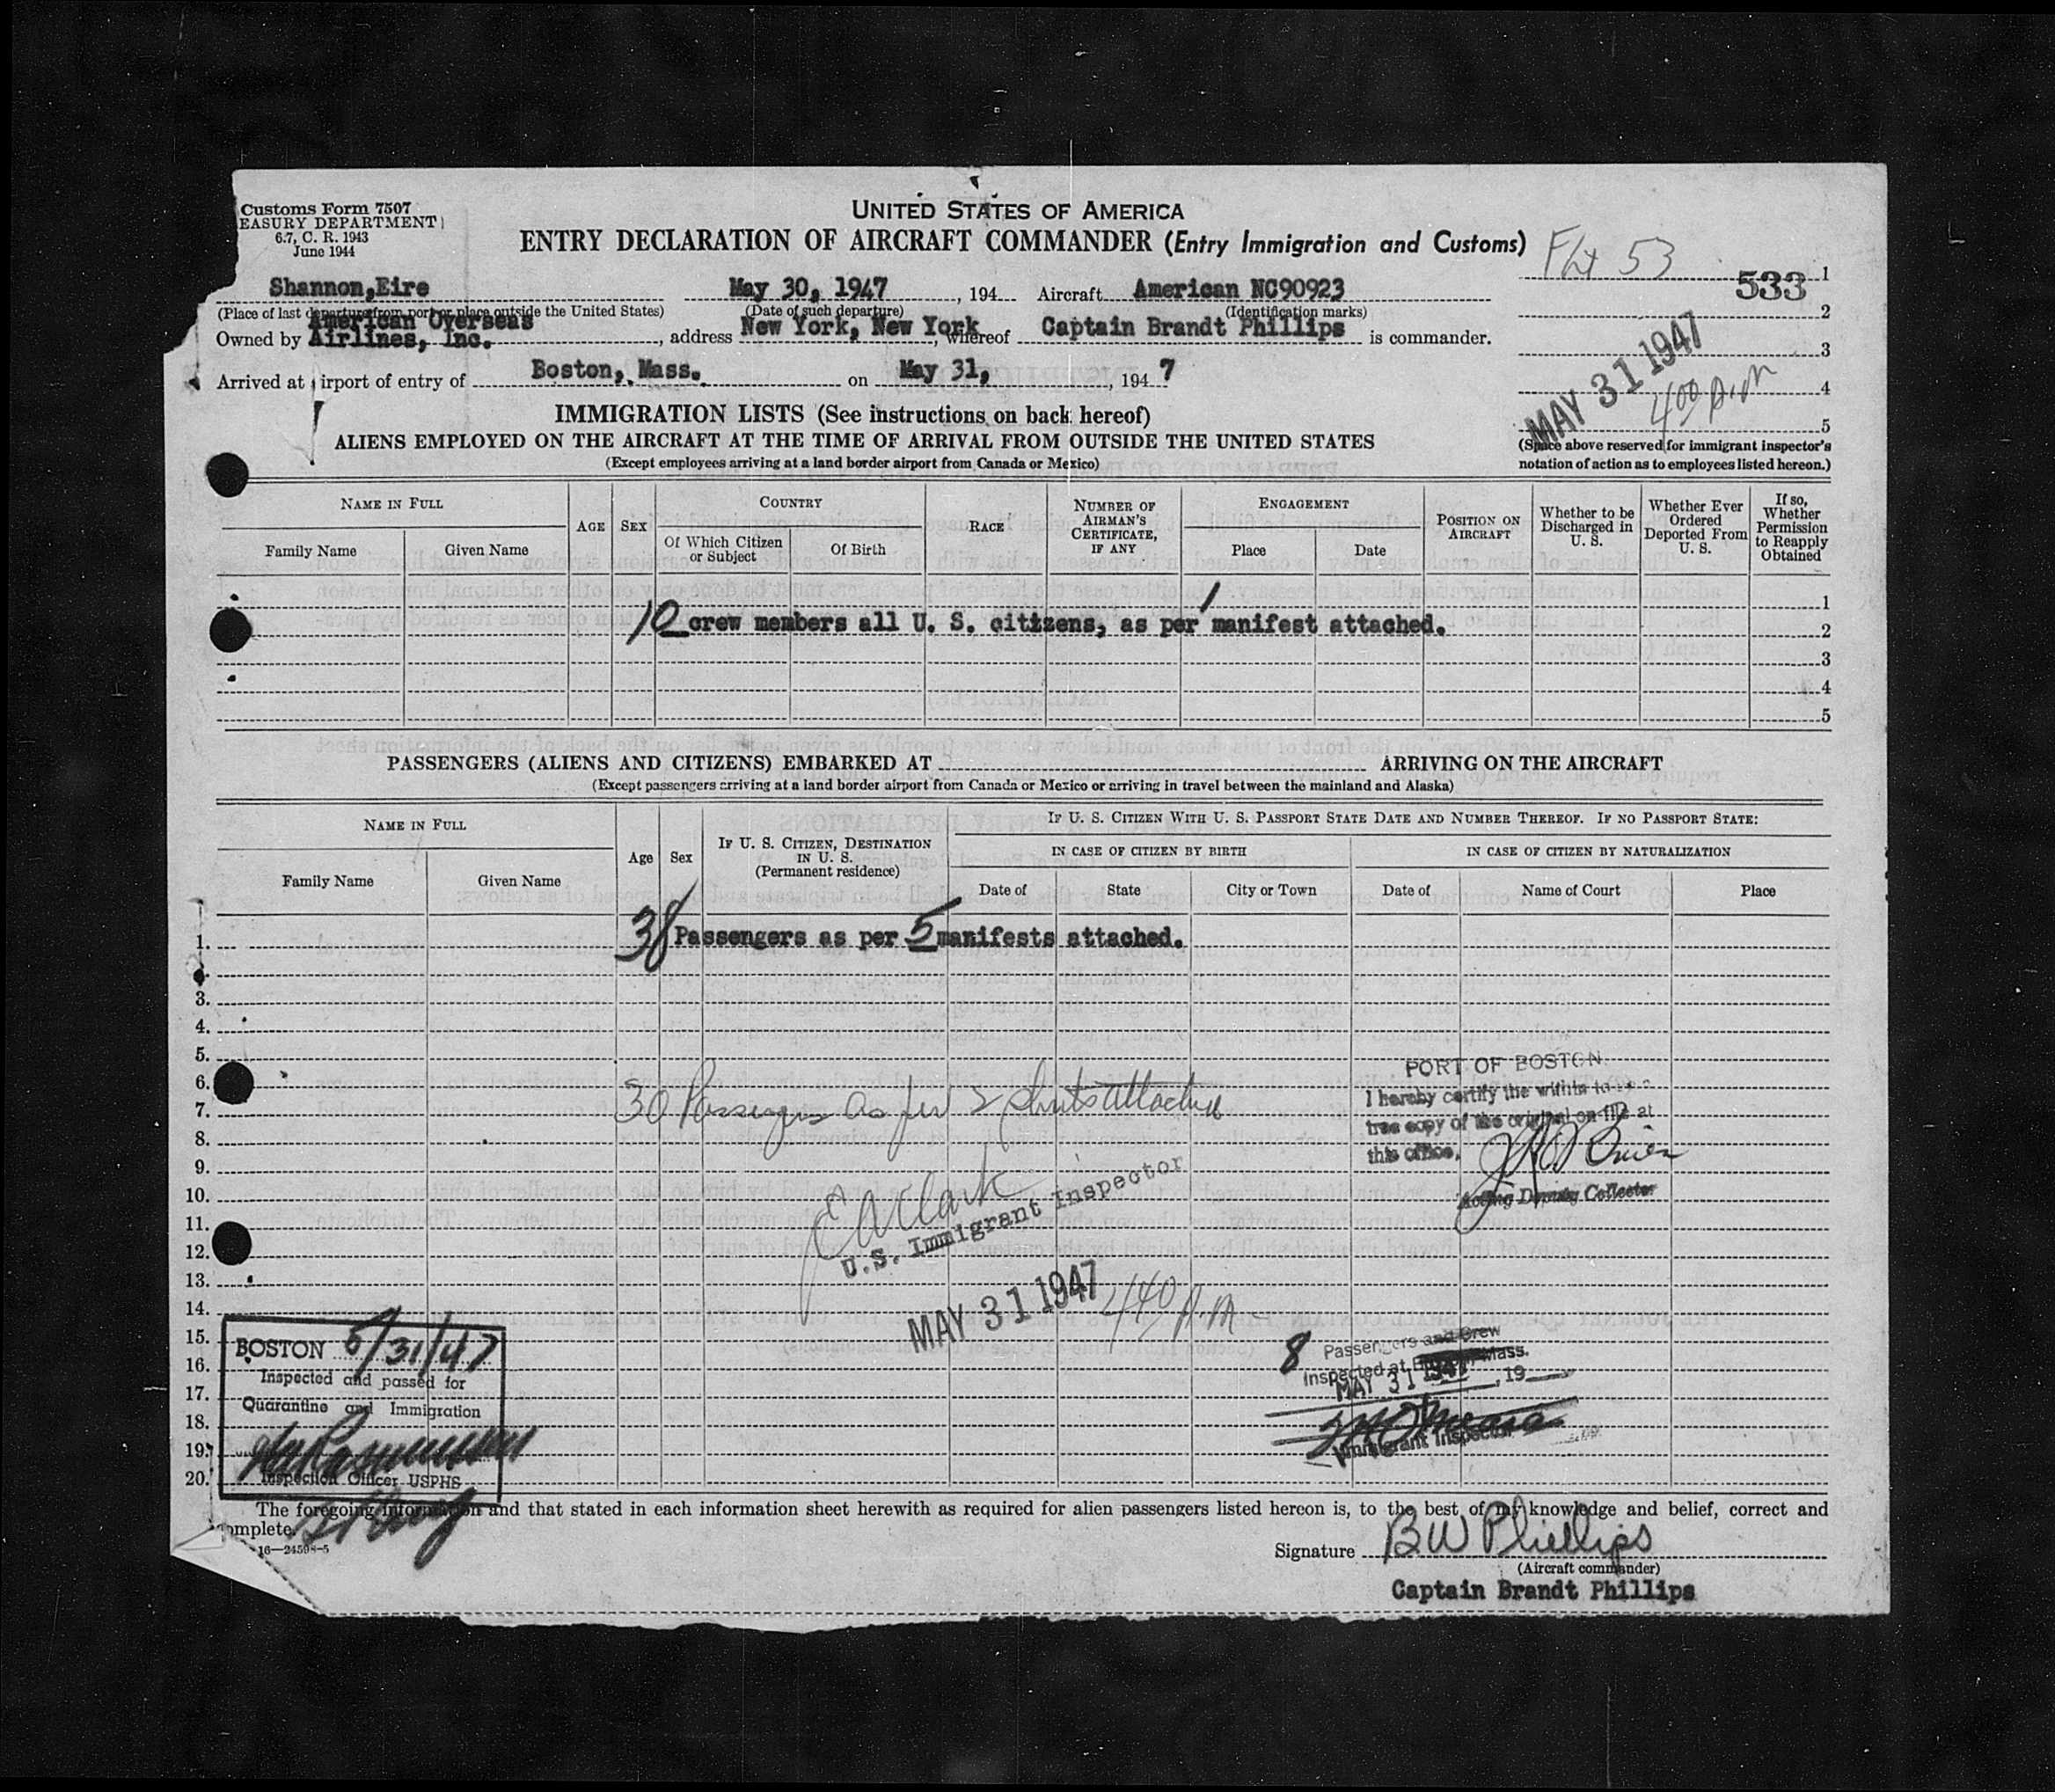 Customs Form 7507
EASURY DEPARTMENT
6.7, C. R. 1943
June 1944
UNITED STATES OF AMERICA
ENTRY DECLARATION OF AIRCRAFT COMMANDER (Entry Immigration and Customs)
Flt 53
533
1
Shannon,Eire May 30, 1947, 194 Aircraft American NC90923
(Place of last departure from port or place outside the United States) (Date of such departure) (Identification marks)
2
American Overseas
Owned by Airlines, Inc., address New York, New York, whereof Captain Brandt Phillips is commander.
3
MAY 31 1947
Arrived at irport of entry of Boston, Mass. on May 31, 1947
4
400 P.M
5
IMMIGRATION LISTS (See instructions on back hereof)
ALIENS EMPLOYED ON THE AIRCRAFT AT THE TIME OF ARRIVAL FROM OUTSIDE THE UNITED STATES
(Except employees arriving at a land border airport from Canada or Mexico)
(Space above reserved for immigrant inspector's
notation of action as to employees listed hereon.)
NAME IN FULL
Family Name
Given Name
AGE
SEX
COUNTRY
Of Which Citizen
or Subject
Of Birth
RACE
NUMBER OF
AIRMAN'S
CERTIFICATE,
IF ANY
ENGAGEMENT
Place
Date
POSITION ON
AIRCRAFT
Whether to be
Discharged in
U. S.
Whether Ever
Ordered
Deported From
U. S.
If so,
Whether
Permission
to Reapply
Obtained
1
10 crew members all U. S. citizens, as per 1 manifest attached.
2
3
4
5
PASSENGERS (ALIENS AND CITIZENS) EMBARKED AT ARRIVING ON THE AIRCRAFT
(Except passengers arriving at a land border airport from Canada or Mexico or arriving in travel between the mainland and Alaska)
NAME IN FULL
Family Name
Given Name
Age
Sex
IF U. S. CITIZEN, DESTINATION
IN U. S.
(Permanent residence)
IF U. S. CITIZEN WITH U. S. PASSPORT STATE DATE AND NUMBER THEREOF. IF NO PASSPORT STATE:
IN CASE OF CITIZEN BY BIRTH
Date of
State
City or Town
IN CASE OF CITIZEN BY NATURALIZATION
Date of
Name of Court
Place
38 Passengers as per 5 manifests attached.
1.
3.
4.
5.
6.
7.
8.
9.
10.
11.
12.
13.
14.
15.
16.
17.
18.
19.
20.
30 Passengers as per 2 sheets attached
PORT OF BOSTON
I hereby certify the within to be a
true copy of the original on file at
this office.
J O'Brien
Acting Deputy Collector
E A Clark
U.S. Immigrant Inspector
MAY 31 1947 440 P.M
BOSTON 5/31/47
Inspected and passed for
Quarantine and Immigration
Rasmussen
Inspection Officer USPHS
8 Passengers and Crew
Inspected at Boston, Mass.
MAY 31 1947, 19
Immigrant Inspector
The foregoing information and that stated in each information sheet herewith as required for alien passengers listed hereon is, to the best of my knowledge and belief, correct and
omplete.
16—24598-5
Signature B W Phillips
(Aircraft commander)
Captain Brandt Phillips